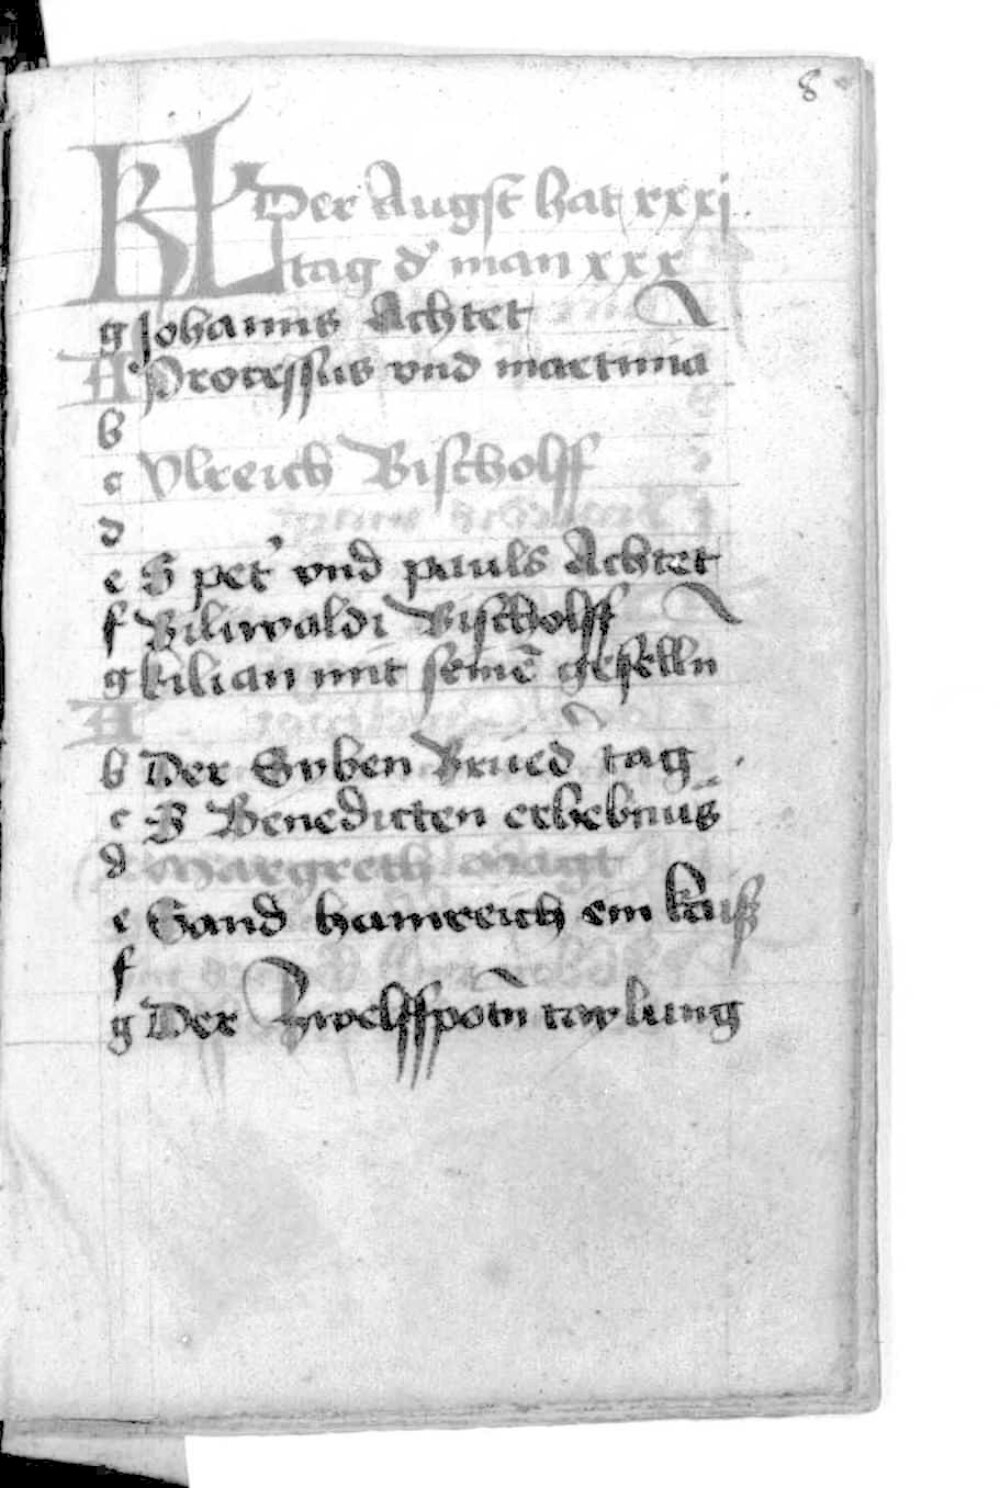 8
KL Der Augst hat xxxj
tag d' man xxx
g Johanns Achtet
A Processus vnd martinia
b
c Vlreich Bischolff
d
e S pet' vnd pauls Achtet
f Biliwaldi Bischolff
g kilian mit seinē geselln
A
b Der Syben Brued' tag
c S Benedicten erhebnus
d Margreth Magt
e Sand hainreich ein kaiß
f
g Der Zwelffpotn̄ taylung